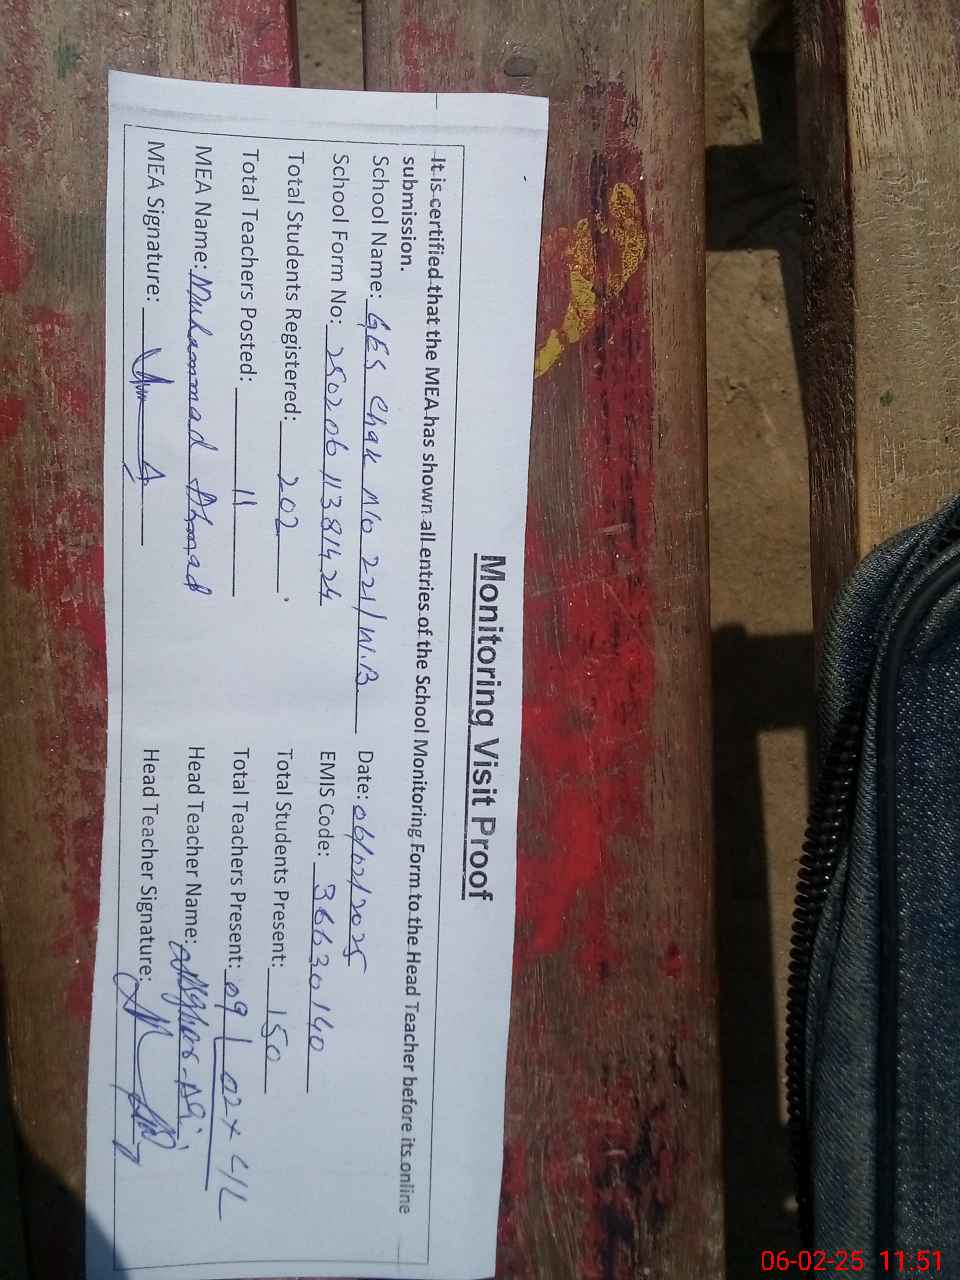 Monitoring Visit Proof
It is certified that the MEA has shown all entries of the School Monitoring Form to the Head Teacher before its online
submission.
School Name: GES Chak No 221/W.B Date: 06/02/2025
School Form No: 25020611381424 EMIS Code: 36630140
Total Students Registered: 202 Total Students Present: 150
Total Teachers Posted: 11 Total Teachers Present: 09 02x C/L
MEA Name: Muhammad Ahmad Head Teacher Name: Asghar Ali
MEA Signature: Head Teacher Signature:
06-02-25 11:51